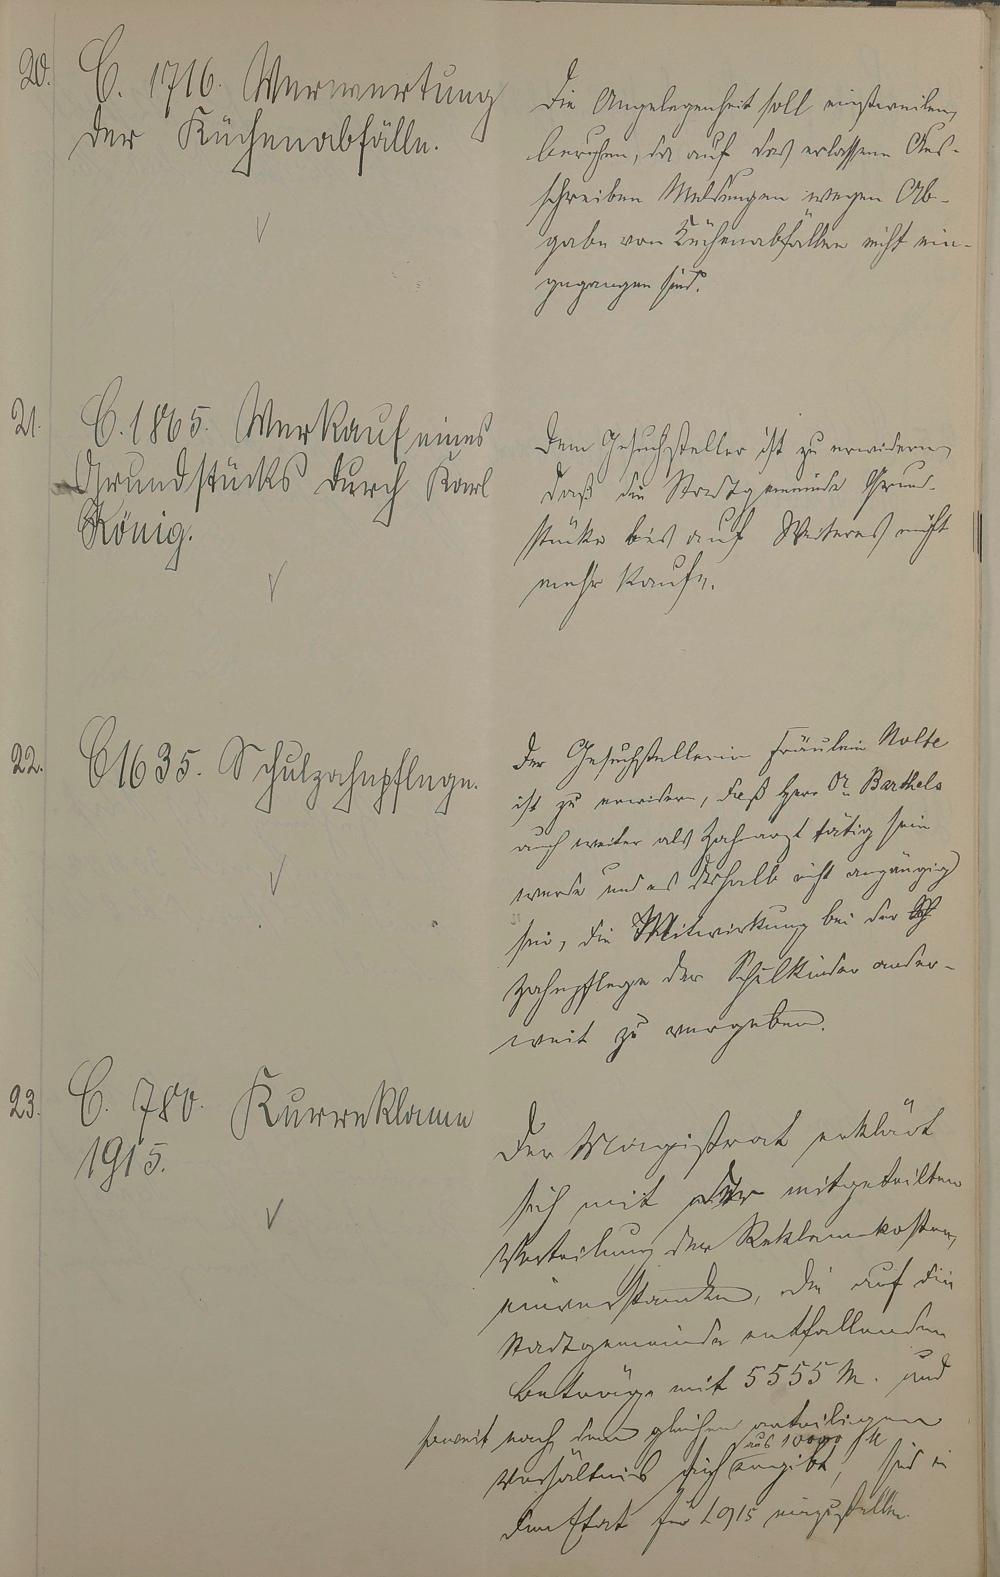 20.
C. 1716. Verwertung
der Küchenabfälle.
Die Angelegenheit soll einstweilen
beruhen, da auf das erlassene Aus-
schreiben Meldungen wegen Ab-
gabe von Küchenabfällen nicht ein-
gegangen sind.
21.
C. 1865. Verkauf eines
Grundstücks durch Karl
König.
Dem Gesuchsteller ist zu erwidern,
daß die Stadtgemeinde Grund-
stücke bis auf Weiteres nicht
mehr kaufe.
22.
C 1635. Schulzahnpflege.
Der Gesuchstellerin Fräulein Nolte
ist zu erwidern, daß Herr Dr. Barthels
auch weiter als Zahnarzt tätig sein
werde und es deshalb nicht angängig
sei, die Mitwirkung bei der
Zahnpflege der Schulkinder ander-
weit zu vergeben.
23.
C. 780. Kurreklame
1915.
Der Magistrat erklärt
sich mit der mitgeteilten
Verteilung der Reklamekosten
einverstanden, die auf die
Stadtgemeinde entfallenden
Beträge mit 5555 M. und
soweit nach dem gleichen anteiligen
Verhältnis sich aus 10000 M
ergibt, sind in
den Etat für 1915 einzustellen.